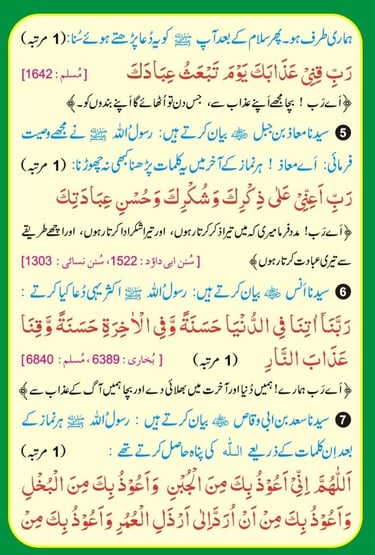 ہماری طرف ہو۔ پھر سلام کے بعد آپ ﷺ کو یہ دُعا پڑھتے ہوئے سُنا: (1 مرتبہ)
رَبِّ قِنِيْ عَذَابَكَ يَوْمَ تَبْعَثُ عِبَادَكَ [مُسلم : 1642]
﴿اَے رَب! بچا مجھے اَپنے عذاب سے، جس دن تو اُٹھائے گا اَپنے بندوں کو۔﴾
5 سیدنا معاذ بن جبل ؓ بیان کرتے ہیں: رسولُ اللہ ﷺ نے مجھے وصیت
فرمائی: اَے معاذ! ہر نماز کے آخر میں یہ کلمات پڑھنا کبھی نہ چھوڑنا: (1 مرتبہ)
رَبِّ اَعِنِّيْ عَلٰى ذِكْرِكَ وَشُكْرِكَ وَحُسْنِ عِبَادَتِكَ
﴿اَے رَب! مدد فرما میری کہ میں تیرا ذکر کرتا رہوں، اور تیرا شکر ادا کرتا رہوں، اور اچھے طریقے
سے تیری عبادت کرتا رہوں﴾ [سُنن ابی داوٗد : 1522، سُنن نسائی : 1303]
6 سیدنا انس ؓ بیان کرتے ہیں: رسولُ اللہ ﷺ اکثر یہی دُعا کیا کرتے :
رَبَّنَا اٰتِنَا فِي الدُّنْيَا حَسَنَةً وَّفِي الْاٰخِرَةِ حَسَنَةً وَّقِنَا
عَذَابَ النَّارِ (1 مرتبہ) [بُخاری : 6389، مُسلم : 6840]
﴿اَے رَب ہمارے! ہمیں دُنیا اور آخرت میں بھلائی دے اور بچا ہمیں آگ کے عذاب سے﴾
7 سیدنا سعد بن ابی وقاص ؓ بیان کرتے ہیں : رسولُ اللہ ﷺ ہر نماز کے
بعد اِن کلمات کے ذریعے اللہ کی پناہ حاصل کرتے تھے : (1 مرتبہ)
اَللّٰهُمَّ اِنِّيْ اَعُوْذُ بِكَ مِنَ الْجُبْنِ وَاَعُوْذُ بِكَ مِنَ الْبُخْلِ
وَاَعُوْذُ بِكَ مِنْ اَنْ اُرَدَّ اِلٰى اَرْذَلِ الْعُمُرِ وَاَعُوْذُ بِكَ مِنْ